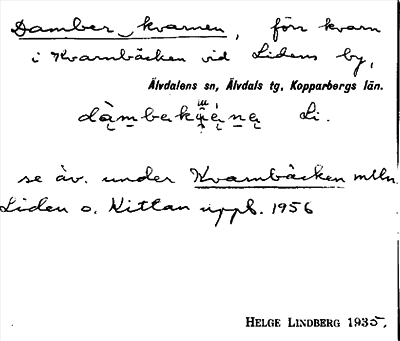 Damber_kvarnen, förr kvarn
i Kvarnbäcken vid Lidens by,
Älvdalens sn, Älvdals tg, Kopparbergs län.
Li.
se äv. under Kvarnbäcken mlln
Liden o. Kittan uppt. 1956
HELGE LINDBERG 1935.